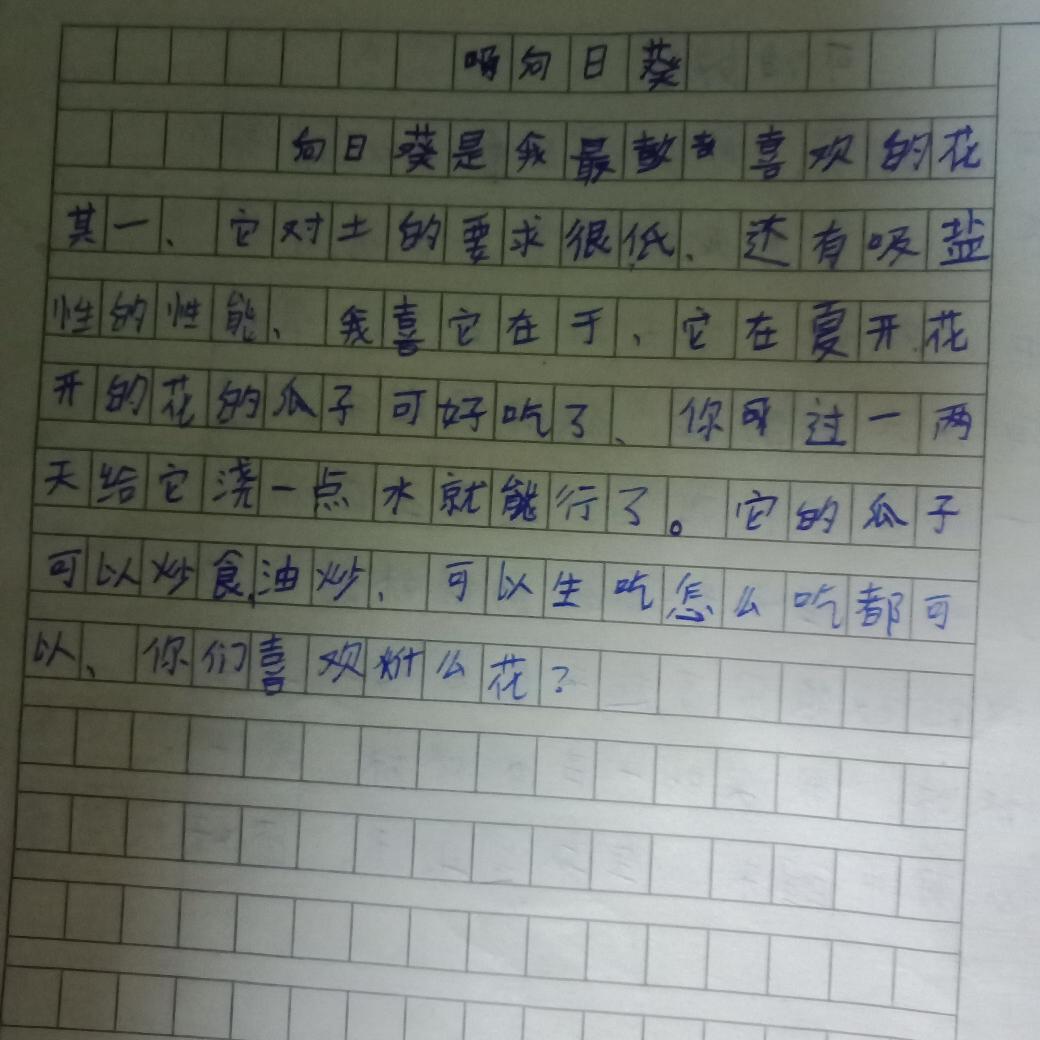 向日葵
向日葵是我最喜欢的花
其一、它对土的要求很低、还有吸盐
性的性能、我喜它在于、它在夏开花
开的花的瓜子可好吃了、你可过一两
天给它浇一点水就能行了。它的瓜子
可以炒食油炒、可以生吃怎么吃都可
以、你们喜欢什么花?